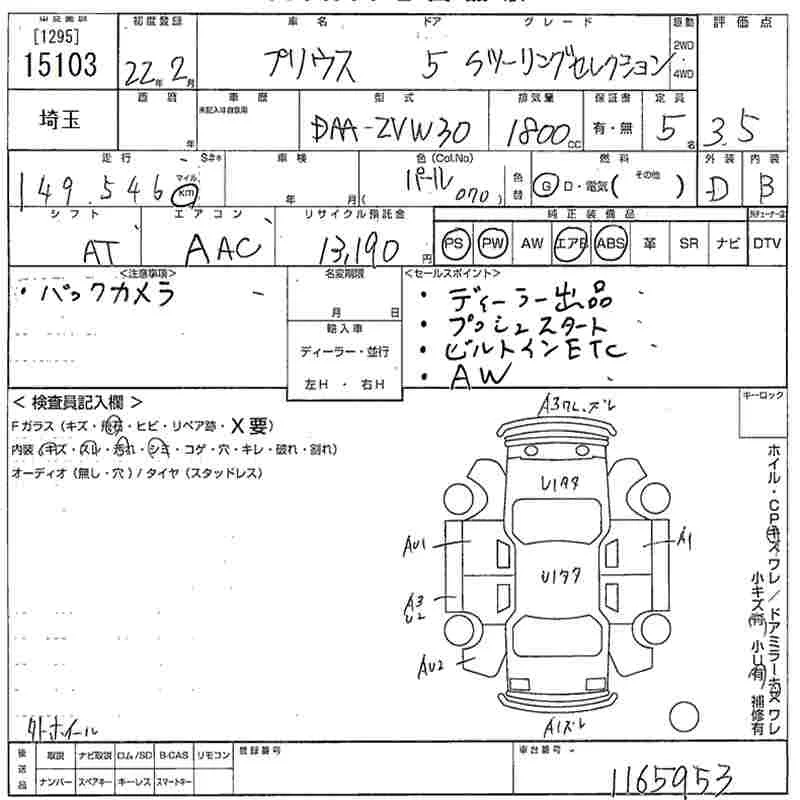 [1295]
15103
初度登録
22年 2月
車名
プリウス
ドア
5
グレード
Sツーリングセレクション
駆動
2WD
4WD
評価点
3.5
埼玉
年
車歴
未記入は自家用
型式
DAA-ZVW30
排気量
1800cc
保証書
有・無
定員
5名
走行
149,546
マイル
km
車検
年 月
色(Col.No)
パール
(070)
色替
燃料
G D・電気( その他 )
外装
D
内装
B
シフト
AT
エアコン
AAC
リサイクル預託金
13,190円
純正装備品
PS PW AW エアB ABS 革 SR ナビ DTV
<注意事項>
・バックカメラ
名変期限
月 日
輸入車
ディーラー・並行
左H ・ 右H
<セールスポイント>
・ディーラー出品
・プッシュスタート
・ビルトインETC
・AW
< 検査員記入欄 >
Fガラス(キズ・飛石・ヒビ・リペア跡・X要)
内装(キズ・スレ・汚れ・シミ・コゲ・穴・キレ・破れ・割れ)
オーディオ(無し・穴)/タイヤ(スタッドレス)
キーロック
A3ワレ.ズレ
U1タタ
AU1
A1
U1タタ
A3
U2
AU2
A1ズレ
ホイル・CPキズワレ/ドアミラーキズワレ
小キズ(有) 小U(有) 補修有
外ホイール
後送品
取説 ナビ取説 ロム/SD B-CAS リモコン
ナンバー スペアキー キーレス スマートキー
登録番号
車台番号
1165953